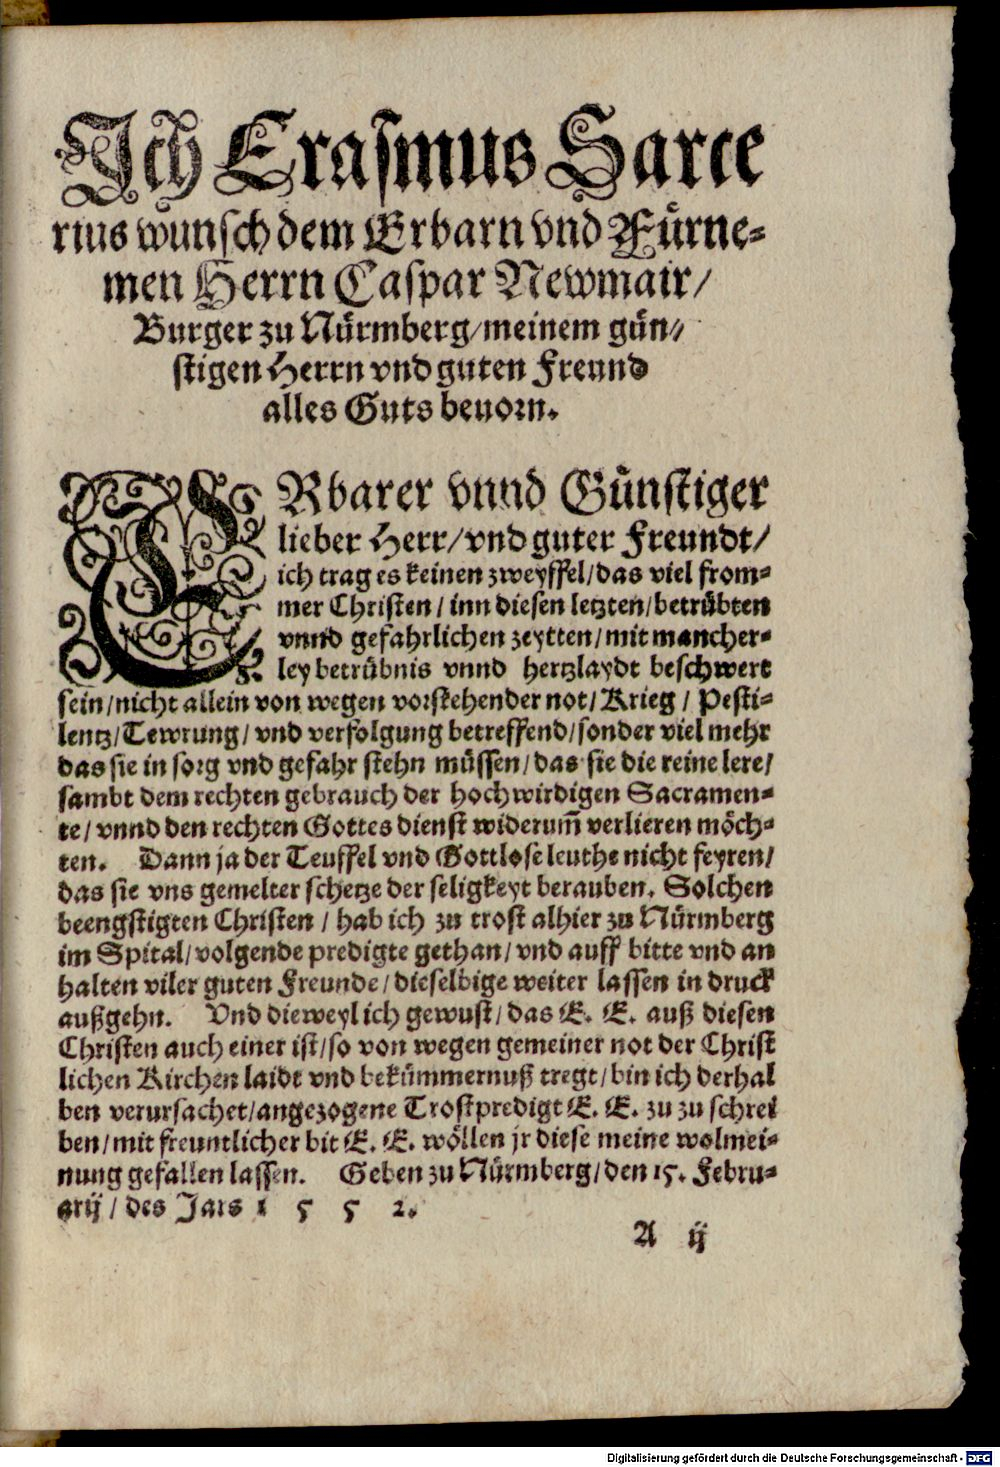 Ich Erasmus Sarce
rius wünsch dem Erbarn vnd Fürne-
men Herrn Caspar Newmair/
Burger zu Nürmberg/meinem gün-
stigen Herrn vnd guten Freund
alles Guts beuorn.
ERbarer vnnd Günstiger
lieber Herr/vnd guter Freundt/
ich trag es keinen zweyffel/das viel from-
mer Christen/inn diesen letzten/betrübten
vnnd gefahrlichen zeytten/mit mancher-
ley betrübnis vnnd hertzlaydt beschwert
sein/nicht allein von wegen vorstehender not/Krieg/Pesti-
lentz/Tewrung/vnd verfolgung betreffend/sonder viel mehr
das sie in sorg vnd gefahr stehn müssen/das sie die reine lere/
sambt dem rechten gebrauch der hochwirdigen Sacramen-
te/vnnd den rechten Gottes dienst widerum̃ verlieren möch-
ten. Dann ja der Teuffel vnd Gottlose leuthe nicht feyren/
das sie vns gemelter schetze der seligkeyt berauben. Solchen
beengstigten Christen/hab ich zu trost alhier zu Nürmberg
im Spital/volgende predigte gethan/vnd auff bitte vnd an
halten viler guten Freunde/dieselbige weiter lassen in druck
außgehn. Vnd dieweyl ich gewust/das E. E. auß diesen
Christen auch einer ist/so von wegen gemeiner not der Christ
lichen Kirchen laidt vnd bekümmernuß tregt/bin ich derhal
ben verursachet/angezogene Trostpredigt E. E. zu zu schrei
ben/mit freuntlicher bit E. E. wöllen jr diese meine wolmei-
nung gefallen lassen. Geben zu Nürmberg/den 15. Febru-
arij/des Jars 1 5 5 2.
A ij
Digitalisierung gefördert durch die Deutsche Forschungsgemeinschaft - DFG